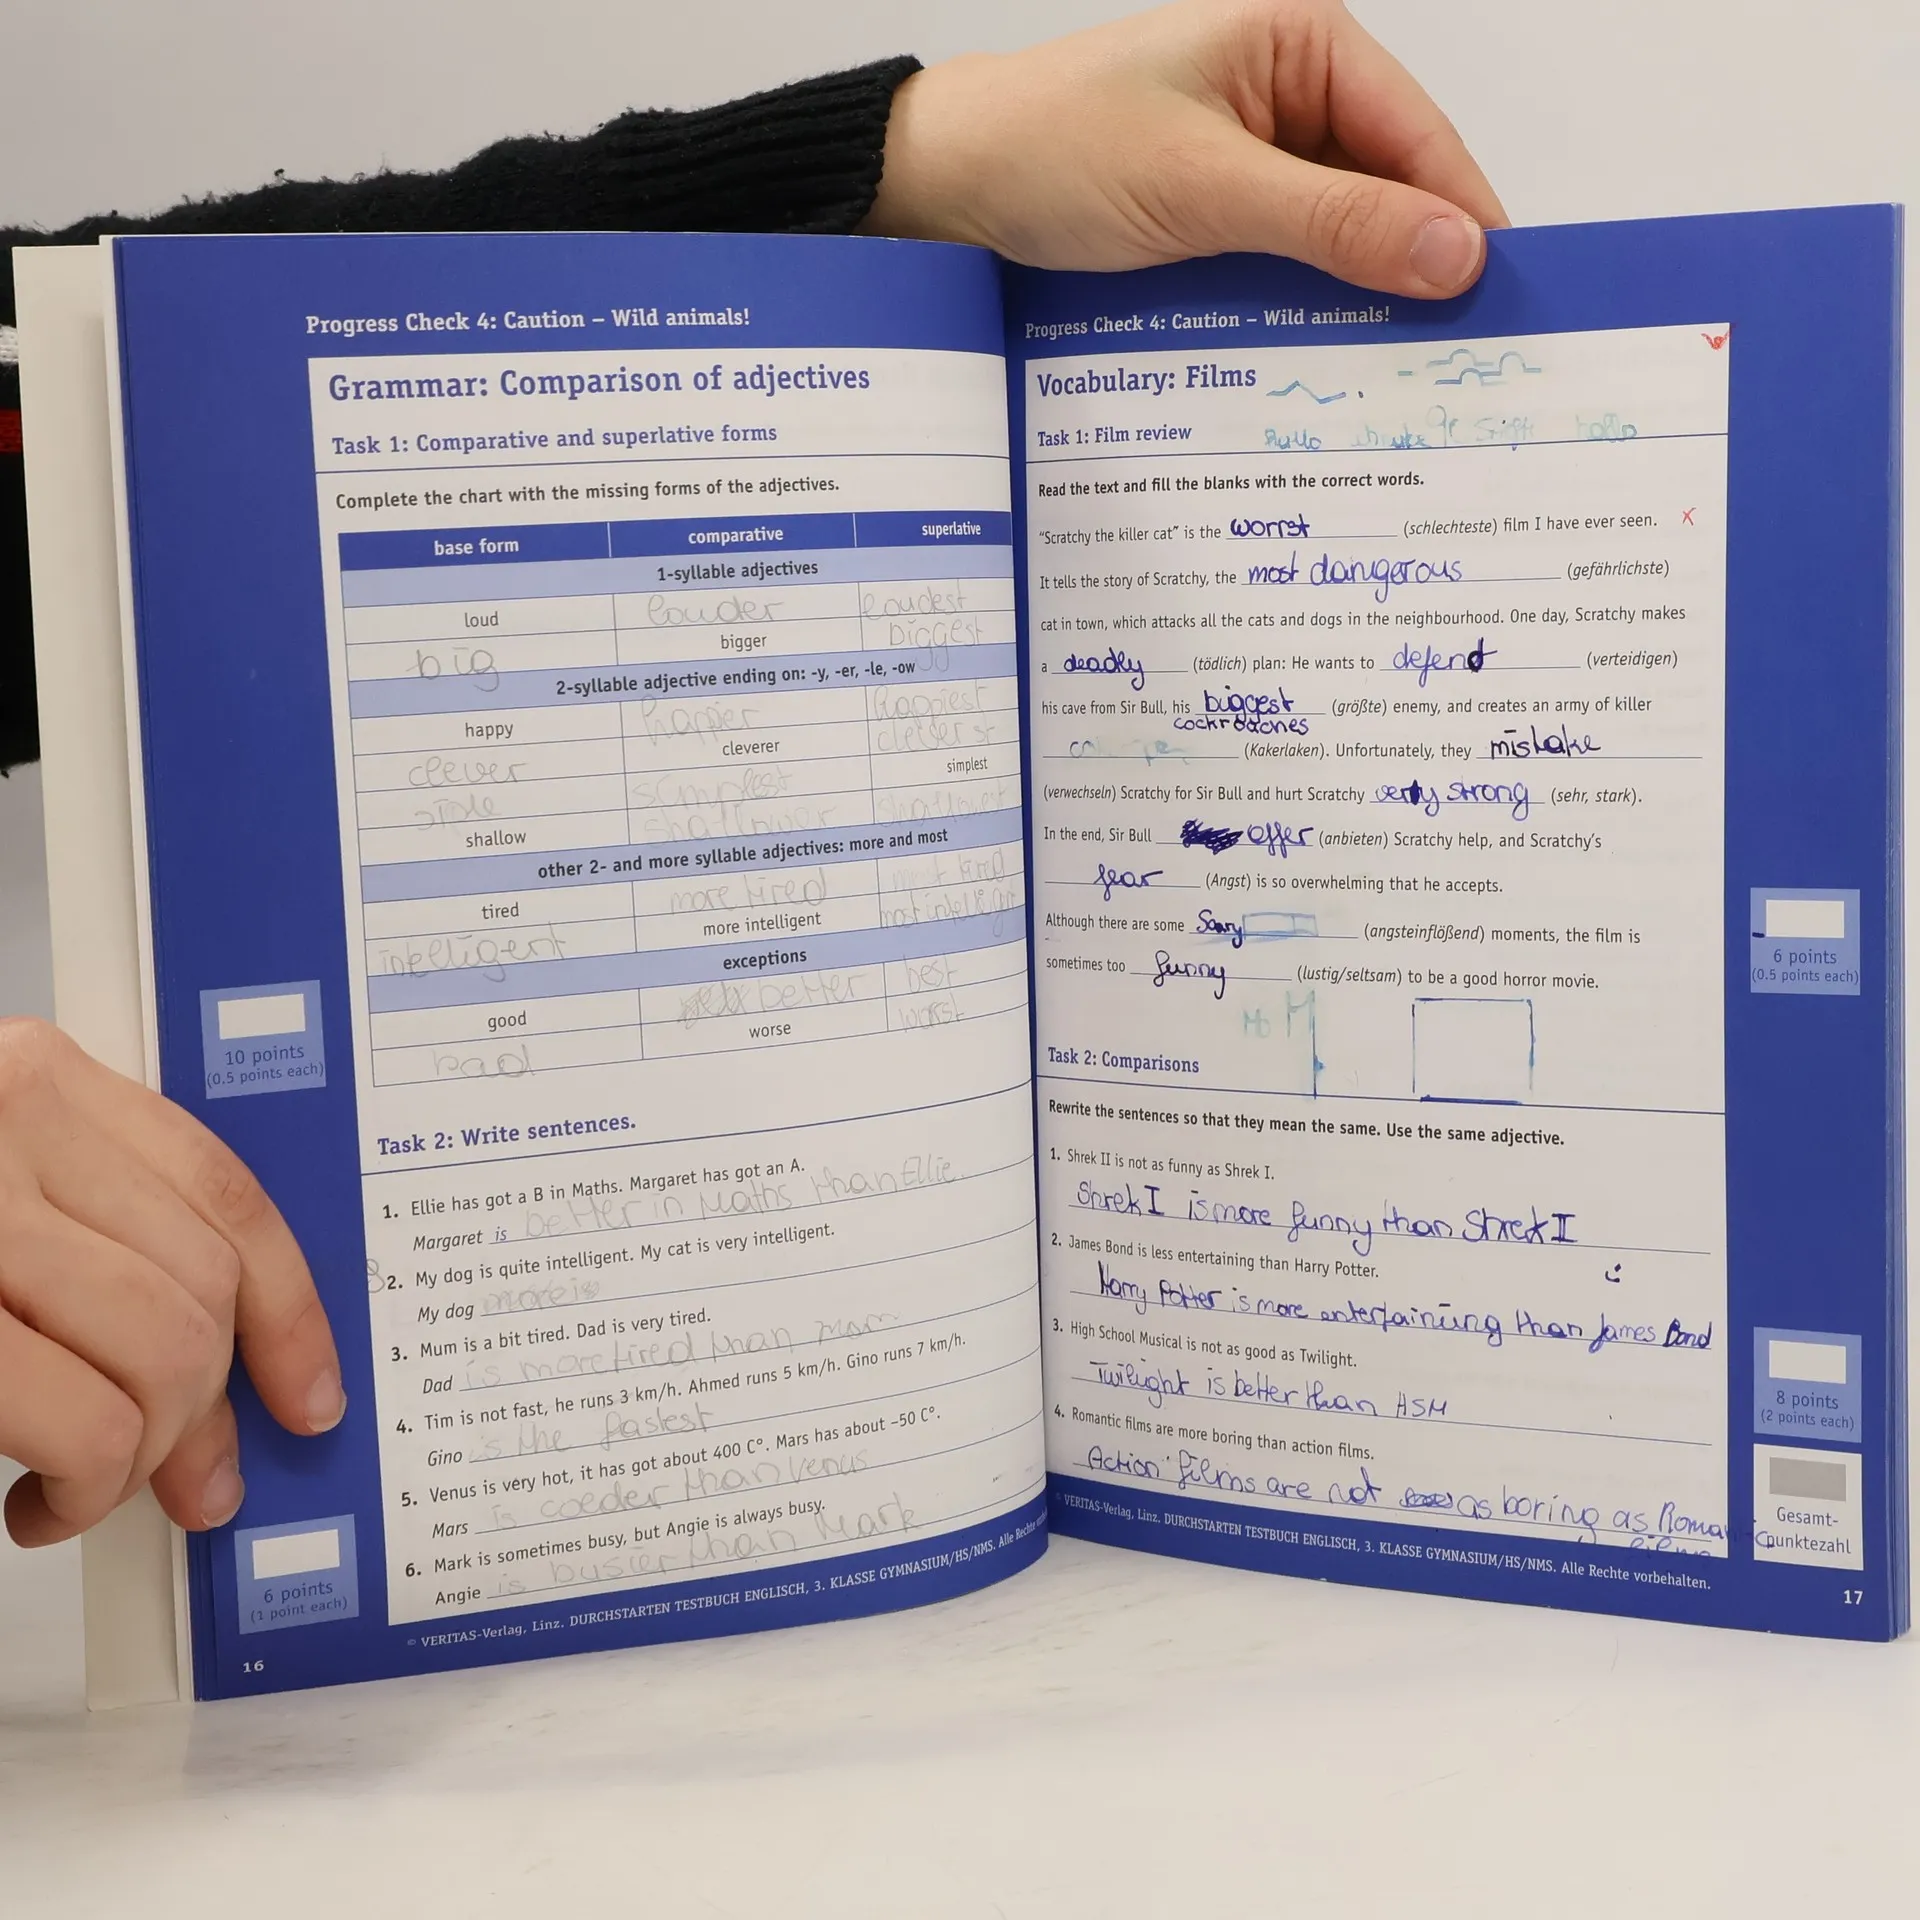 Progress Check 4: Caution – Wild animals!
Grammar: Comparison of adjectives
Task 1: Comparative and superlative forms
Complete the chart with the missing forms of the adjectives.
base form comparative superlative
1-syllable adjectives
loud louder loudest
big bigger biggest
2-syllable adjective ending on: -y, -er, -le, -ow
happy happier happiest
clever cleverer cleverst
simplest simplest
shallow shallower shallowest
other 2- and more syllable adjectives: more and most
tired more tired most tired
intelligent more intelligent most intelligent
exceptions
good better best
bad worse worst
10 points
(0.5 points each)
Task 2: Write sentences.
1. Ellie has got a B in Maths. Margaret has got an A.
Margaret is better in Maths than Ellie.
2. My dog is quite intelligent. My cat is very intelligent.
My dog more is
3. Mum is a bit tired. Dad is very tired.
Dad is more tired than mom
4. Tim is not fast, he runs 3 km/h. Ahmed runs 5 km/h. Gino runs 7 km/h.
Gino is the fastest
5. Venus is very hot, it has got about 400 C°. Mars has about –50 C°.
Mars is coeder than Venus
6. Mark is sometimes busy, but Angie is always busy.
Angie is busier than Mark
6 points
(1 point each)
© VERITAS-Verlag, Linz. DURCHSTARTEN TESTBUCH ENGLISCH, 3. KLASSE GYMNASIUM/HS/NMS. Alle Rechte
16
Progress Check 4: Caution – Wild animals!
Vocabulary: Films
Task 1: Film review
hallo
Read the text and fill the blanks with the correct words.
"Scratchy the killer cat" is the worrst (schlechteste) film I have ever seen.
It tells the story of Scratchy, the most dangerous (gefährlichste)
cat in town, which attacks all the cats and dogs in the neighbourhood. One day, Scratchy makes
a deadly (tödlich) plan: He wants to defend (verteidigen)
his cave from Sir Bull, his biggest (größte) enemy, and creates an army of killer
cockroaches
(Kakerlaken). Unfortunately, they mistake
(verwechseln) Scratchy for Sir Bull and hurt Scratchy very strong (sehr, stark).
In the end, Sir Bull offer (anbieten) Scratchy help, and Scratchy's
fear (Angst) is so overwhelming that he accepts.
Although there are some Scary (angsteinflößend) moments, the film is
sometimes too funny (lustig/seltsam) to be a good horror movie.
6 points
(0.5 points each)
Task 2: Comparisons
Rewrite the sentences so that they mean the same. Use the same adjective.
1. Shrek II is not as funny as Shrek I.
Shrek I is more funny than Shrek II
2. James Bond is less entertaining than Harry Potter.
Harry Potter is more entertaining than James Bond
3. High School Musical is not as good as Twilight.
Twilight is better than HSM
4. Romantic films are more boring than action films.
Action films are not as boring as Roman
films
8 points
(2 points each)
Gesamt-
punktezahl
© VERITAS-Verlag, Linz. DURCHSTARTEN TESTBUCH ENGLISCH, 3. KLASSE GYMNASIUM/HS/NMS. Alle Rechte vorbehalten.
17